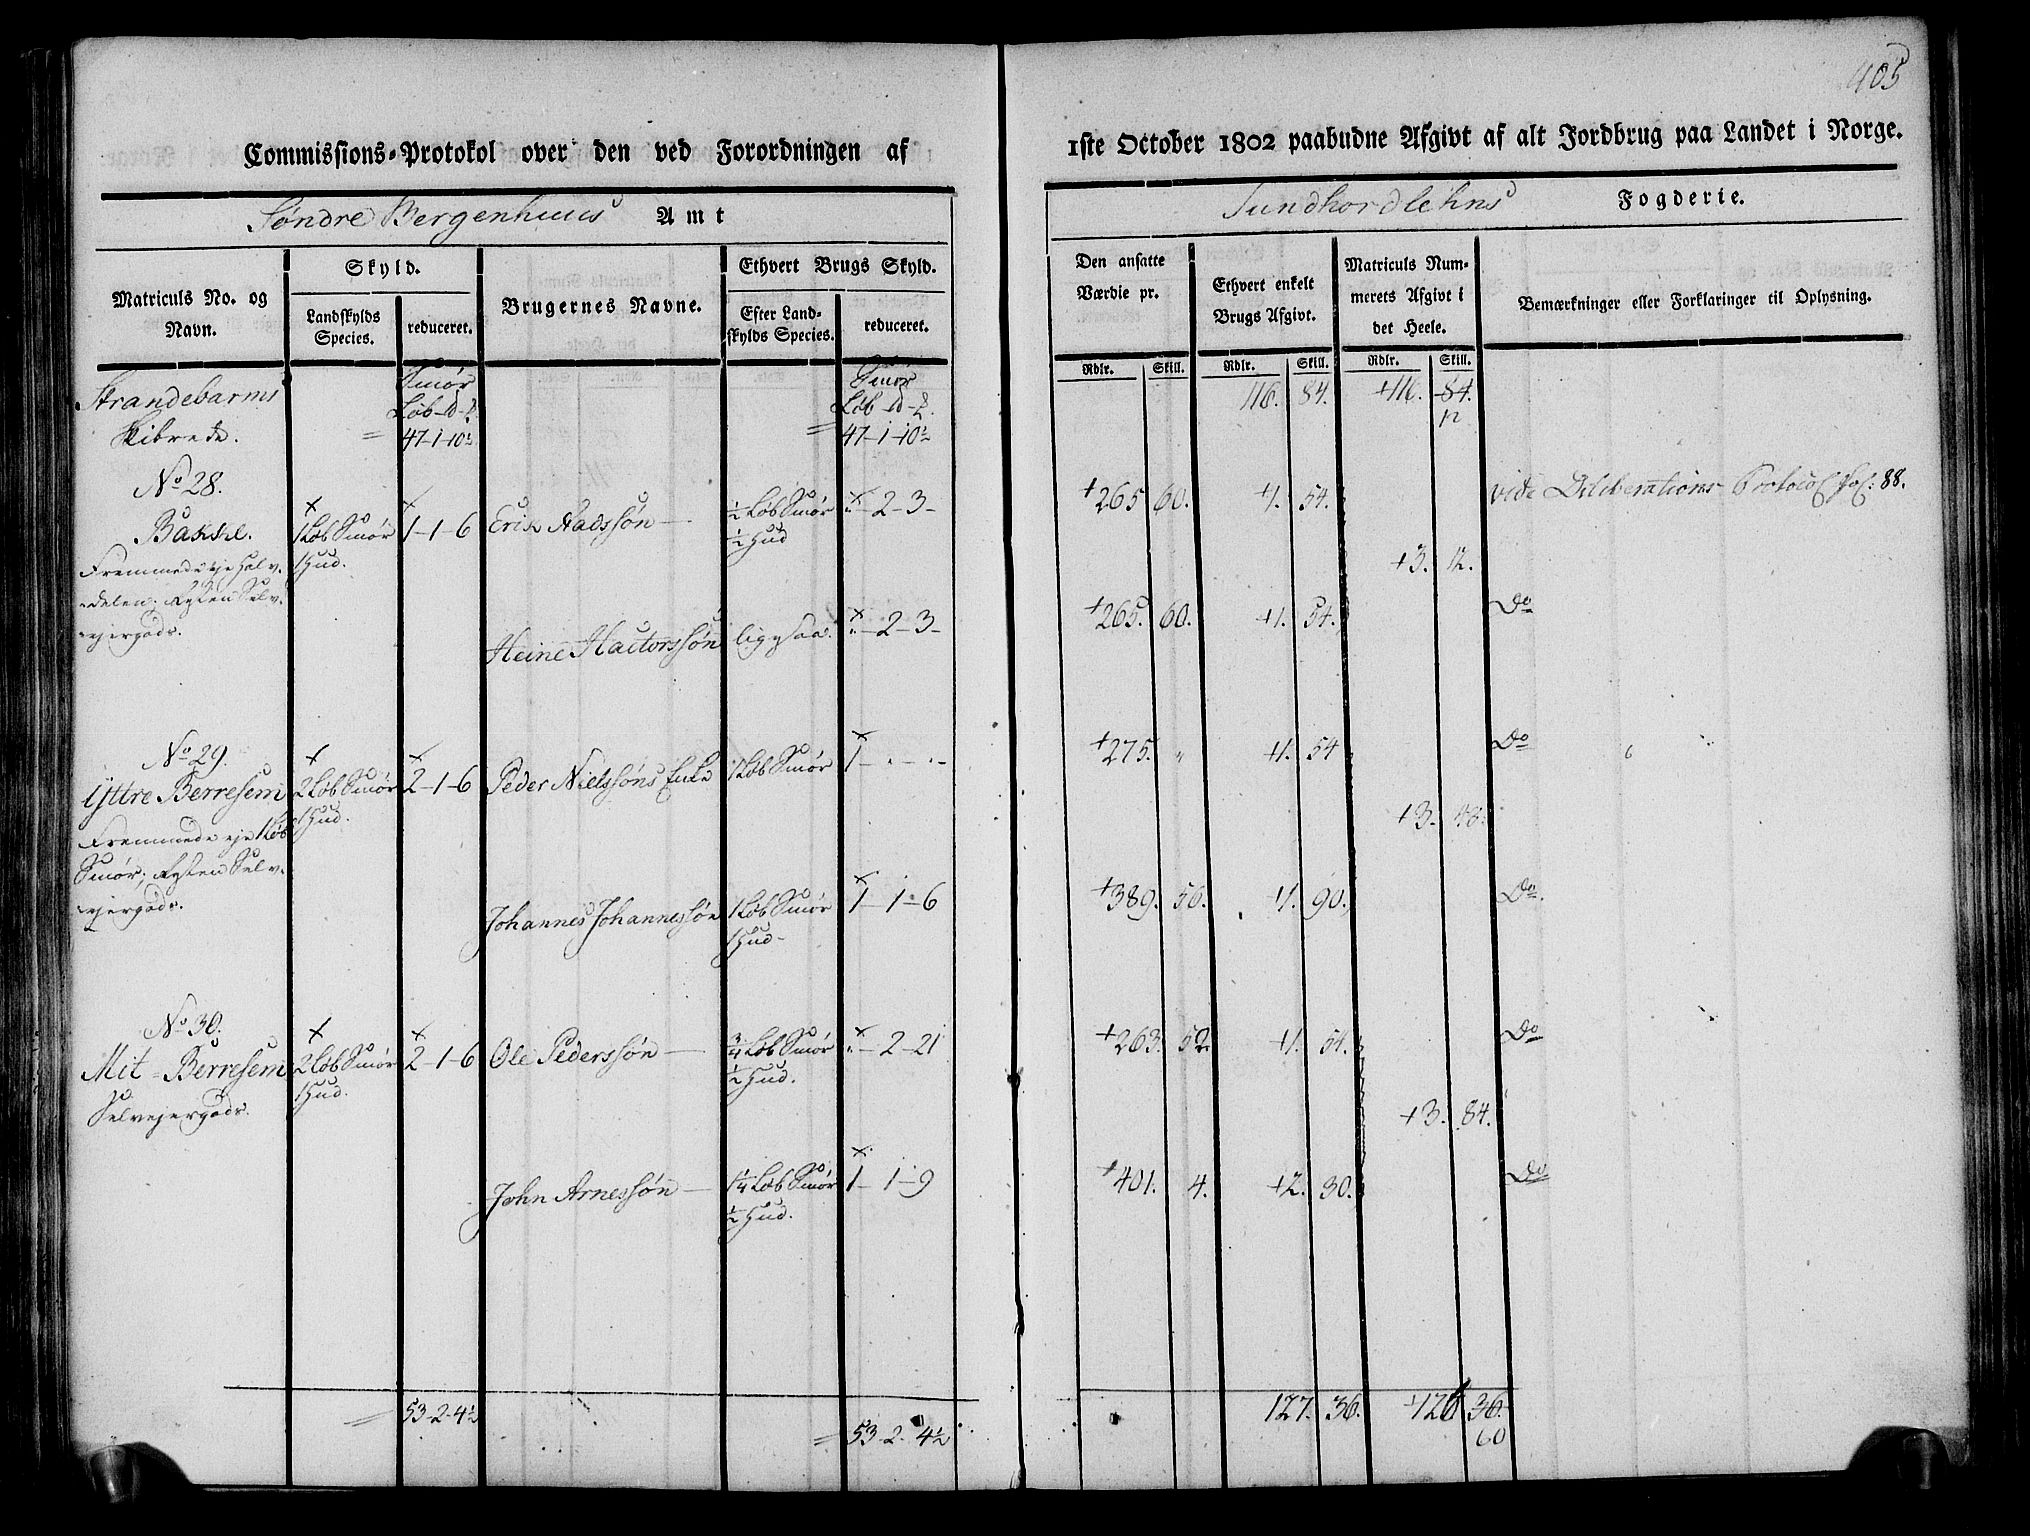 405
Commissions-Protokol over den ved Forordningen af
1ste October 1802 paabudne Afgivt af alt Jordbrug paa Landet i Norge.
Søndre Bergenhuus Amt
Sundhordlehns Fogderie.
Matriculs No. og Navn.
Skyld.
Landskylds Species.
reduceret.
Brugernes Navne.
Ethvert Brugs Skyld.
Efter Landskylds Species.
reduceret.
Den ansatte Værdie pr.
Rdlr. Skill.
Ethvert enkelt Brugs Afgivt.
Rdlr. Skill.
Matriculs Nummerets Afgivt i det Heele.
Rdlr. Skill.
Bemærkninger eller Forklaringer til Oplysning.
Strandebarms Skibrede.
Smør
Løb
= 47-1-10½
Smør
Løb
= 47-1-10½
116. 84. +116. 84.
12
No 28.
Bakke.
Fremmede eje halv-
delen; Resten Selv-
ejergods.
1 Løb Smør
1 Hud.
1-1-6
Erik Aadssøn
½ Løb Smør
½ Hud
"-2-3-
+265 60. +1. 54.
vide Deliberations-Protocol fol: 88.
+3. 12.
Heine Hactorssøn
ligesaa.
"-2-3-
+265. 60. +1. 54.
Do
No 29.
Yttre Berresem
Fremmede eje 1 Løb
Smør; Resten Selv-
ejergods.
2 Løb Smør
1 Hud.
2-1-6
Peder Nielssøns Enke
1 Løb Smør
1-"-"-
+275. " +1. 54
Do
+3. 48.
Johannes Johannessøn
1 Løb Smør
1 Hud-
1-1-6
+389. 56. +1. 90.
Do.
No 30.
Mit-Berresem
Selvejergods.
2 Løb Smør
1 Hud.
2-1-6
Ole Pederssøn
¾ Løb Smør
½ Hud.
"-2-21
+263. 52. +1. 54.
Do
+3. 84.
John Arnessøn
1¼ Løb Smør
½ Hud.
1-1-9
+401. 4. +2. 30.
Do
= 53-2-4½
= 53-2-4½
127. 36. +126 36.
60